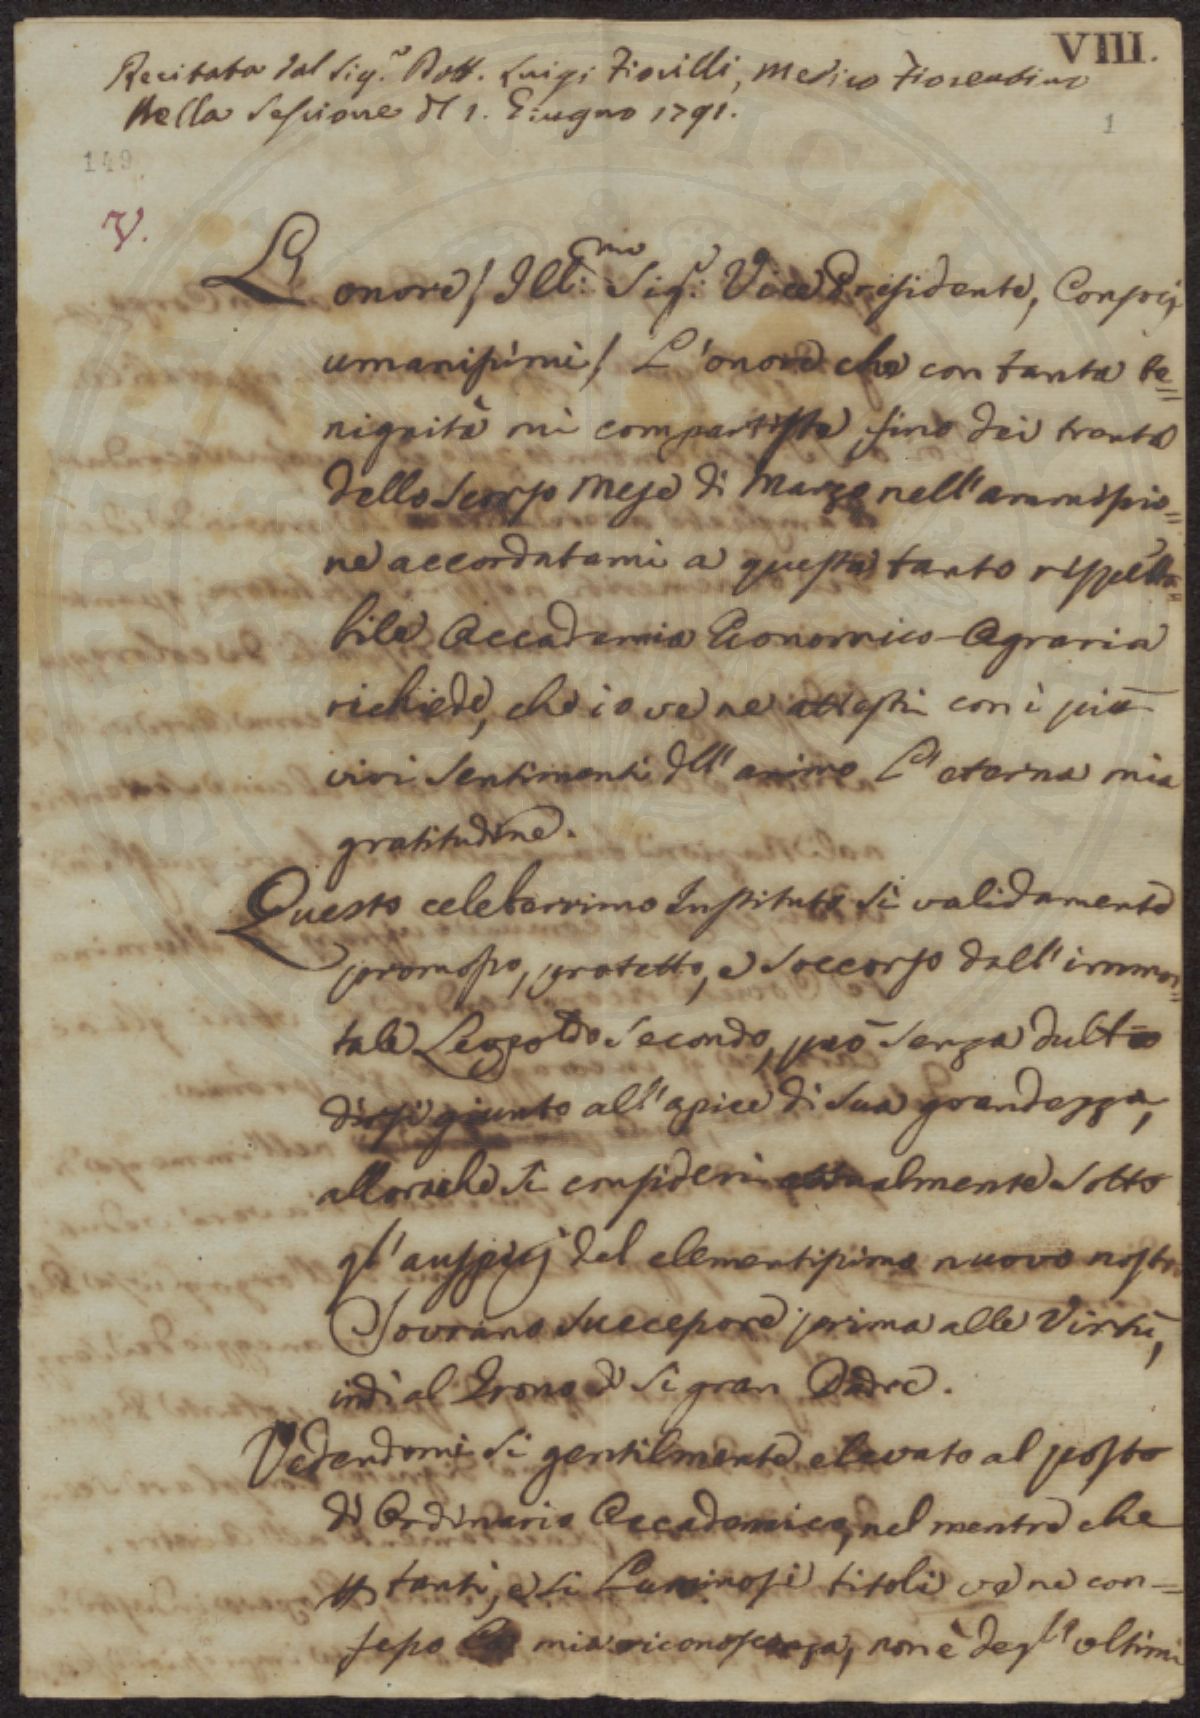 VIII.
Recitata dal Sig.r Dott. Luigi Fiorilli, Medico Fiorentino
Nella Sessione dl 1. Giugno 1791.
1
149
V.
L'onore, Ill:mo Sig:r Vice Presidente, Consocj
umanissimi, L'onore che con tanta be=
nignità mi compartiste, fino dei trenta
dello scorso Mese di Marzo nell'ammissio=
ne accordatami a questa tanto rispetta=
bile Accademia Economico-Agraria
richiede, che io ve ne attesti con i più
vivi sentimenti dll'animo l'eterna mia
gratitudine.
Questo celeberrimo Instituto sì validamente
promosso, protetto, e soccorso dall'immor=
tale Leopoldo Secondo, può senza dubbio
dirsi giunto all'apice di sua grandezza,
allorache si consideri attualmente sotto
gl'auspicj del clementissimo nuovo nostro
Sovrano successore prima alle Virtù,
indi al Trono di sì gran Padre.
Vedendomi sì gentilmente elevato al posto
di Ordinario Accademico, nel mentre che
tanti, e sì Luminosi titoli ve ne con=
fesso la mia riconoscenza, non è degl'ultimi